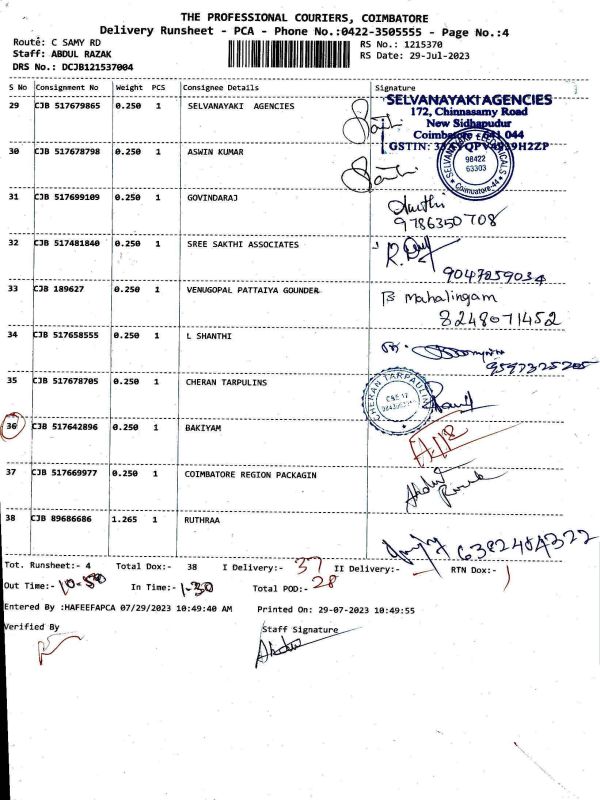 THE PROFESSIONAL COURIERS, COIMBATORE
Delivery Runsheet - PCA - Phone No.:0422-3505555 - Page No.:4
Route: C SAMY RD
RS No.: 1215370
Staff: ABDUL RAZAK
RS Date: 29-Jul-2023
DRS No.: DCJB121537004
S No Consignment No Weight PCS Consignee Details Signature
29 CJB 517679865 0.250 1 SELVANAYAKI AGENCIES
SELVANAYAKI AGENCIES
172, Chinnasamy Road
New Sidhapudur
Coimbatore - 641 044
GSTIN:
98422
63303
Coimbatore-44
30 CJB 517678798 0.250 1 ASWIN KUMAR
31 CJB 517699109 0.250 1 GOVINDARAJ
9786350708
32 CJB 517481840 0.250 1 SREE SAKTHI ASSOCIATES
9047859034
33 CJB 189627 0.250 1 VENUGOPAL PATTAIYA GOUNDER
B Mahalingam
8248071452
34 CJB 517658555 0.250 1 L SHANTHI
9597325205
35 CJB 517678705 0.250 1 CHERAN TARPULINS
CHERAN TARPAULIN
36 CJB 517642896 0.250 1 BAKIYAM
37 CJB 517669977 0.250 1 COIMBATORE REGION PACKAGIN
38 CJB 89686686 1.265 1 RUTHRAA
6382484322
Tot. Runsheet:- 4 Total Dox:- 38 I Delivery:- 37 II Delivery:- — RTN Dox:- 1
Out Time:- 10-50 In Time:- 1-30 Total POD:- 28
Entered By :HAFEEFAPCA 07/29/2023 10:49:40 AM Printed On: 29-07-2023 10:49:55
Verified By Staff Signature